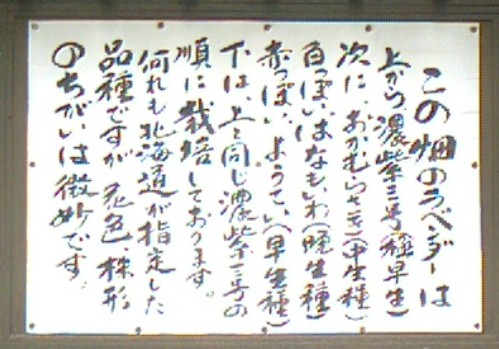 この畑のラベンダーは
上から濃紫三号(極早生)
次に、おかむらさき(中生種)
白っぽい、はなもいわ(晩生種)
赤っぽい、ようてい(早生種)
下は、上と同じ濃紫三号の
順に栽培しております。
何れも北海道が指定した
品種ですが花色・株形
のちがいは微妙です。